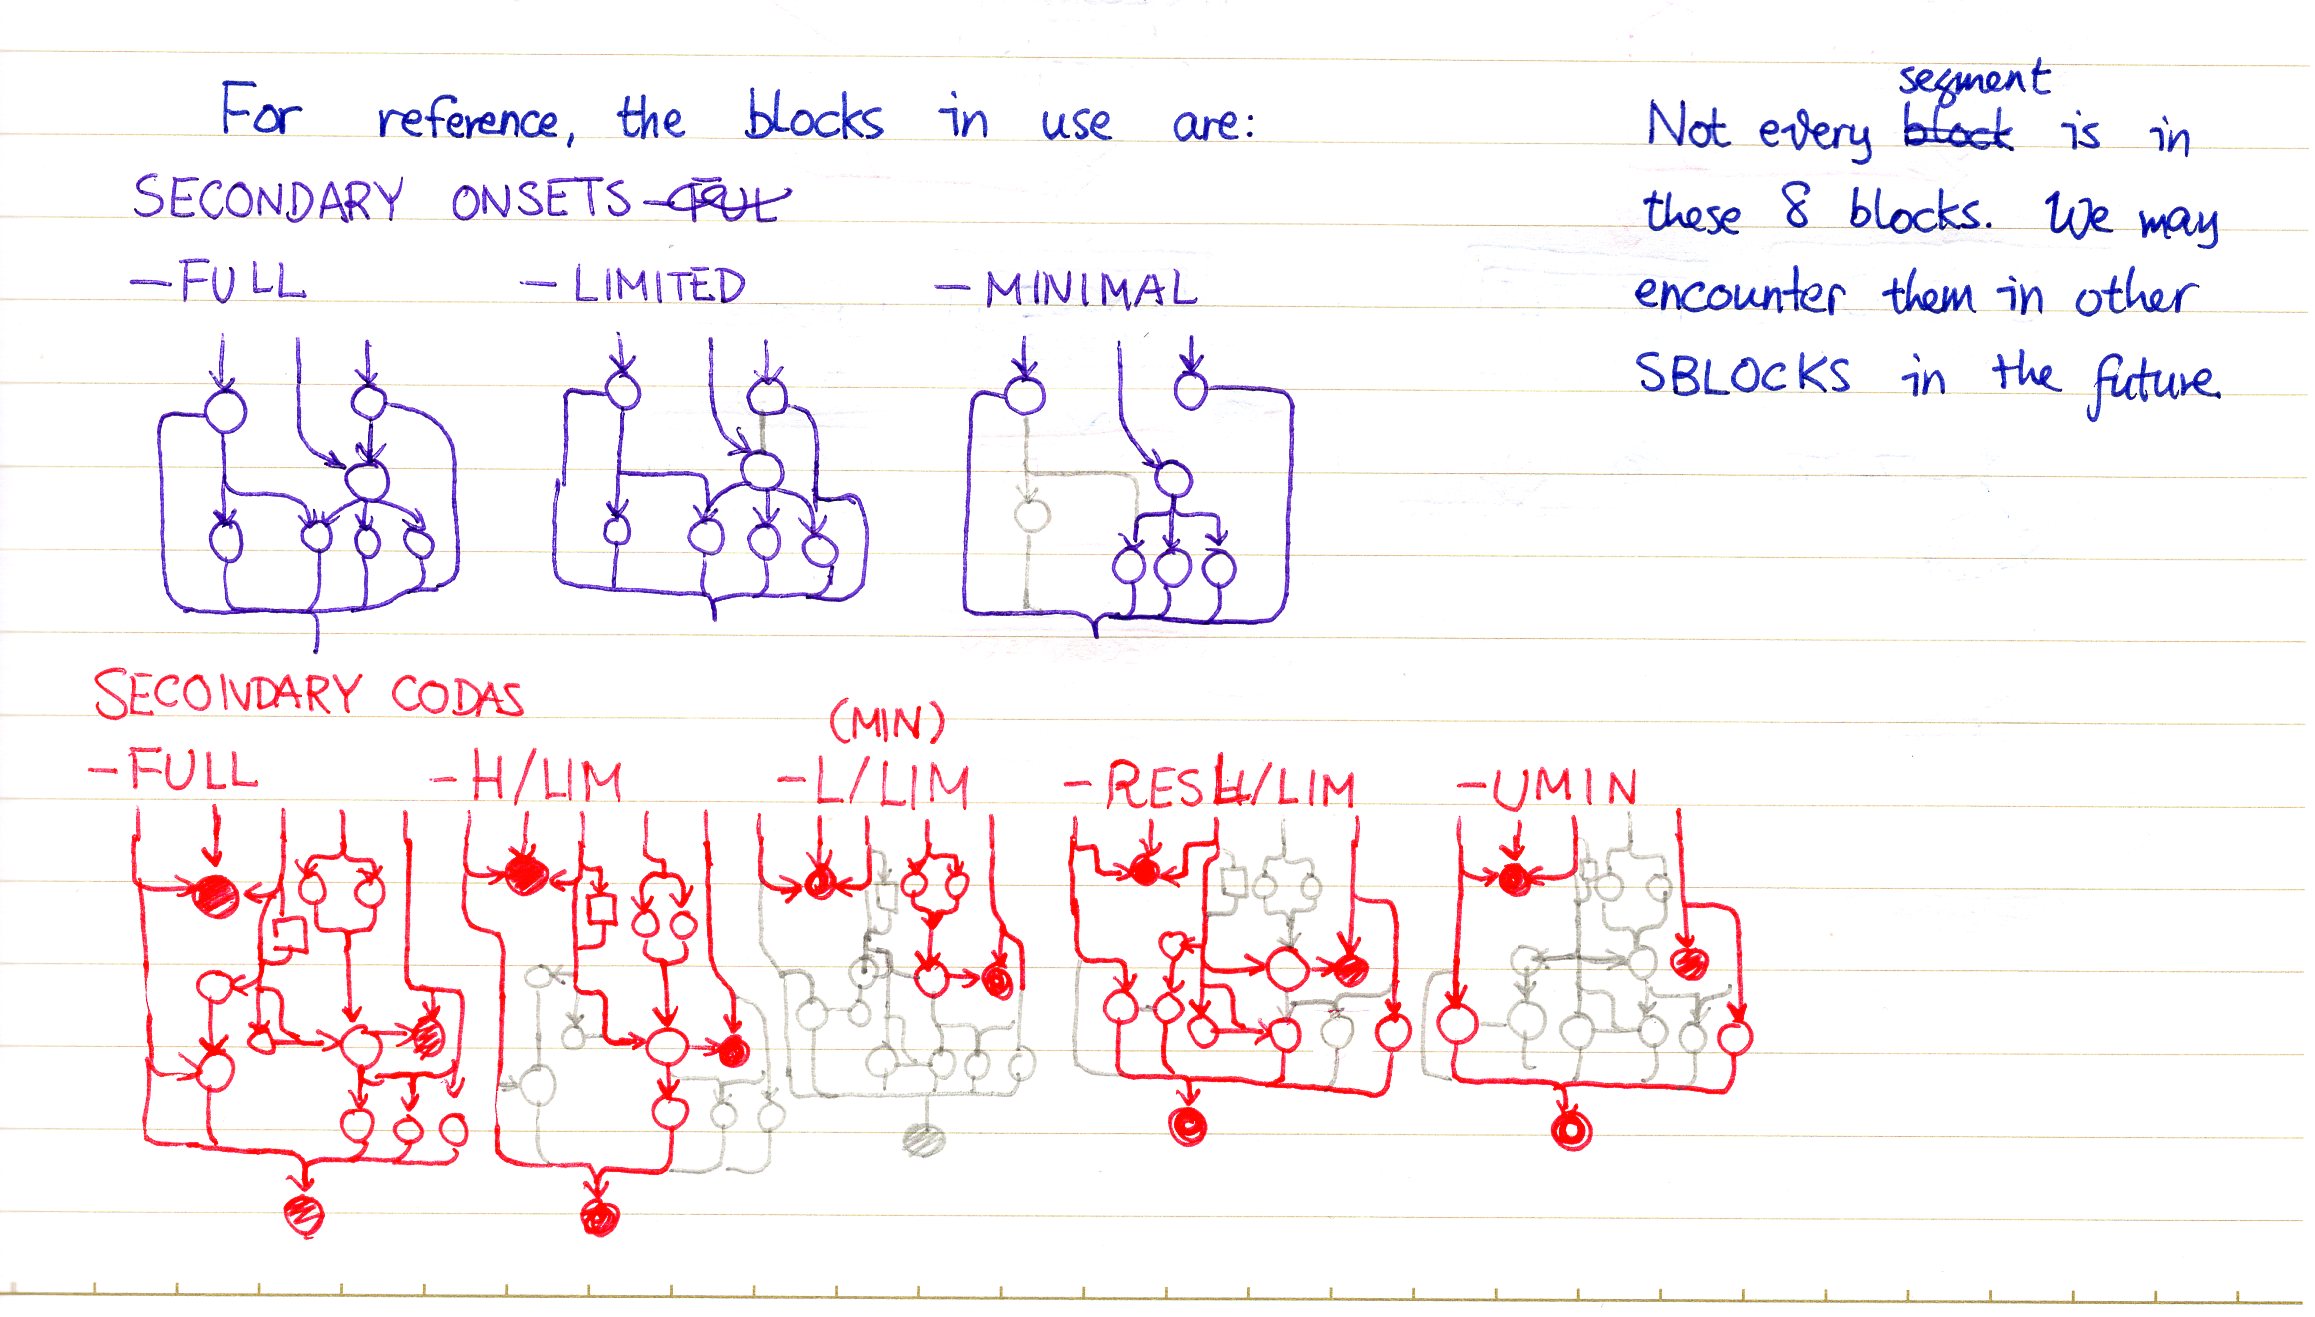 For reference, the blocks in use are:
SECONDARY ONSETS
—FULL —LIMITED —MINIMAL
SECONDARY CODAS
(MIN)
—FULL —H/LIM —L/LIM —RESH/LIM —UMIN
segment
Not every block is in
these 8 blocks. We may
encounter them in other
SBLOCKS in the future.